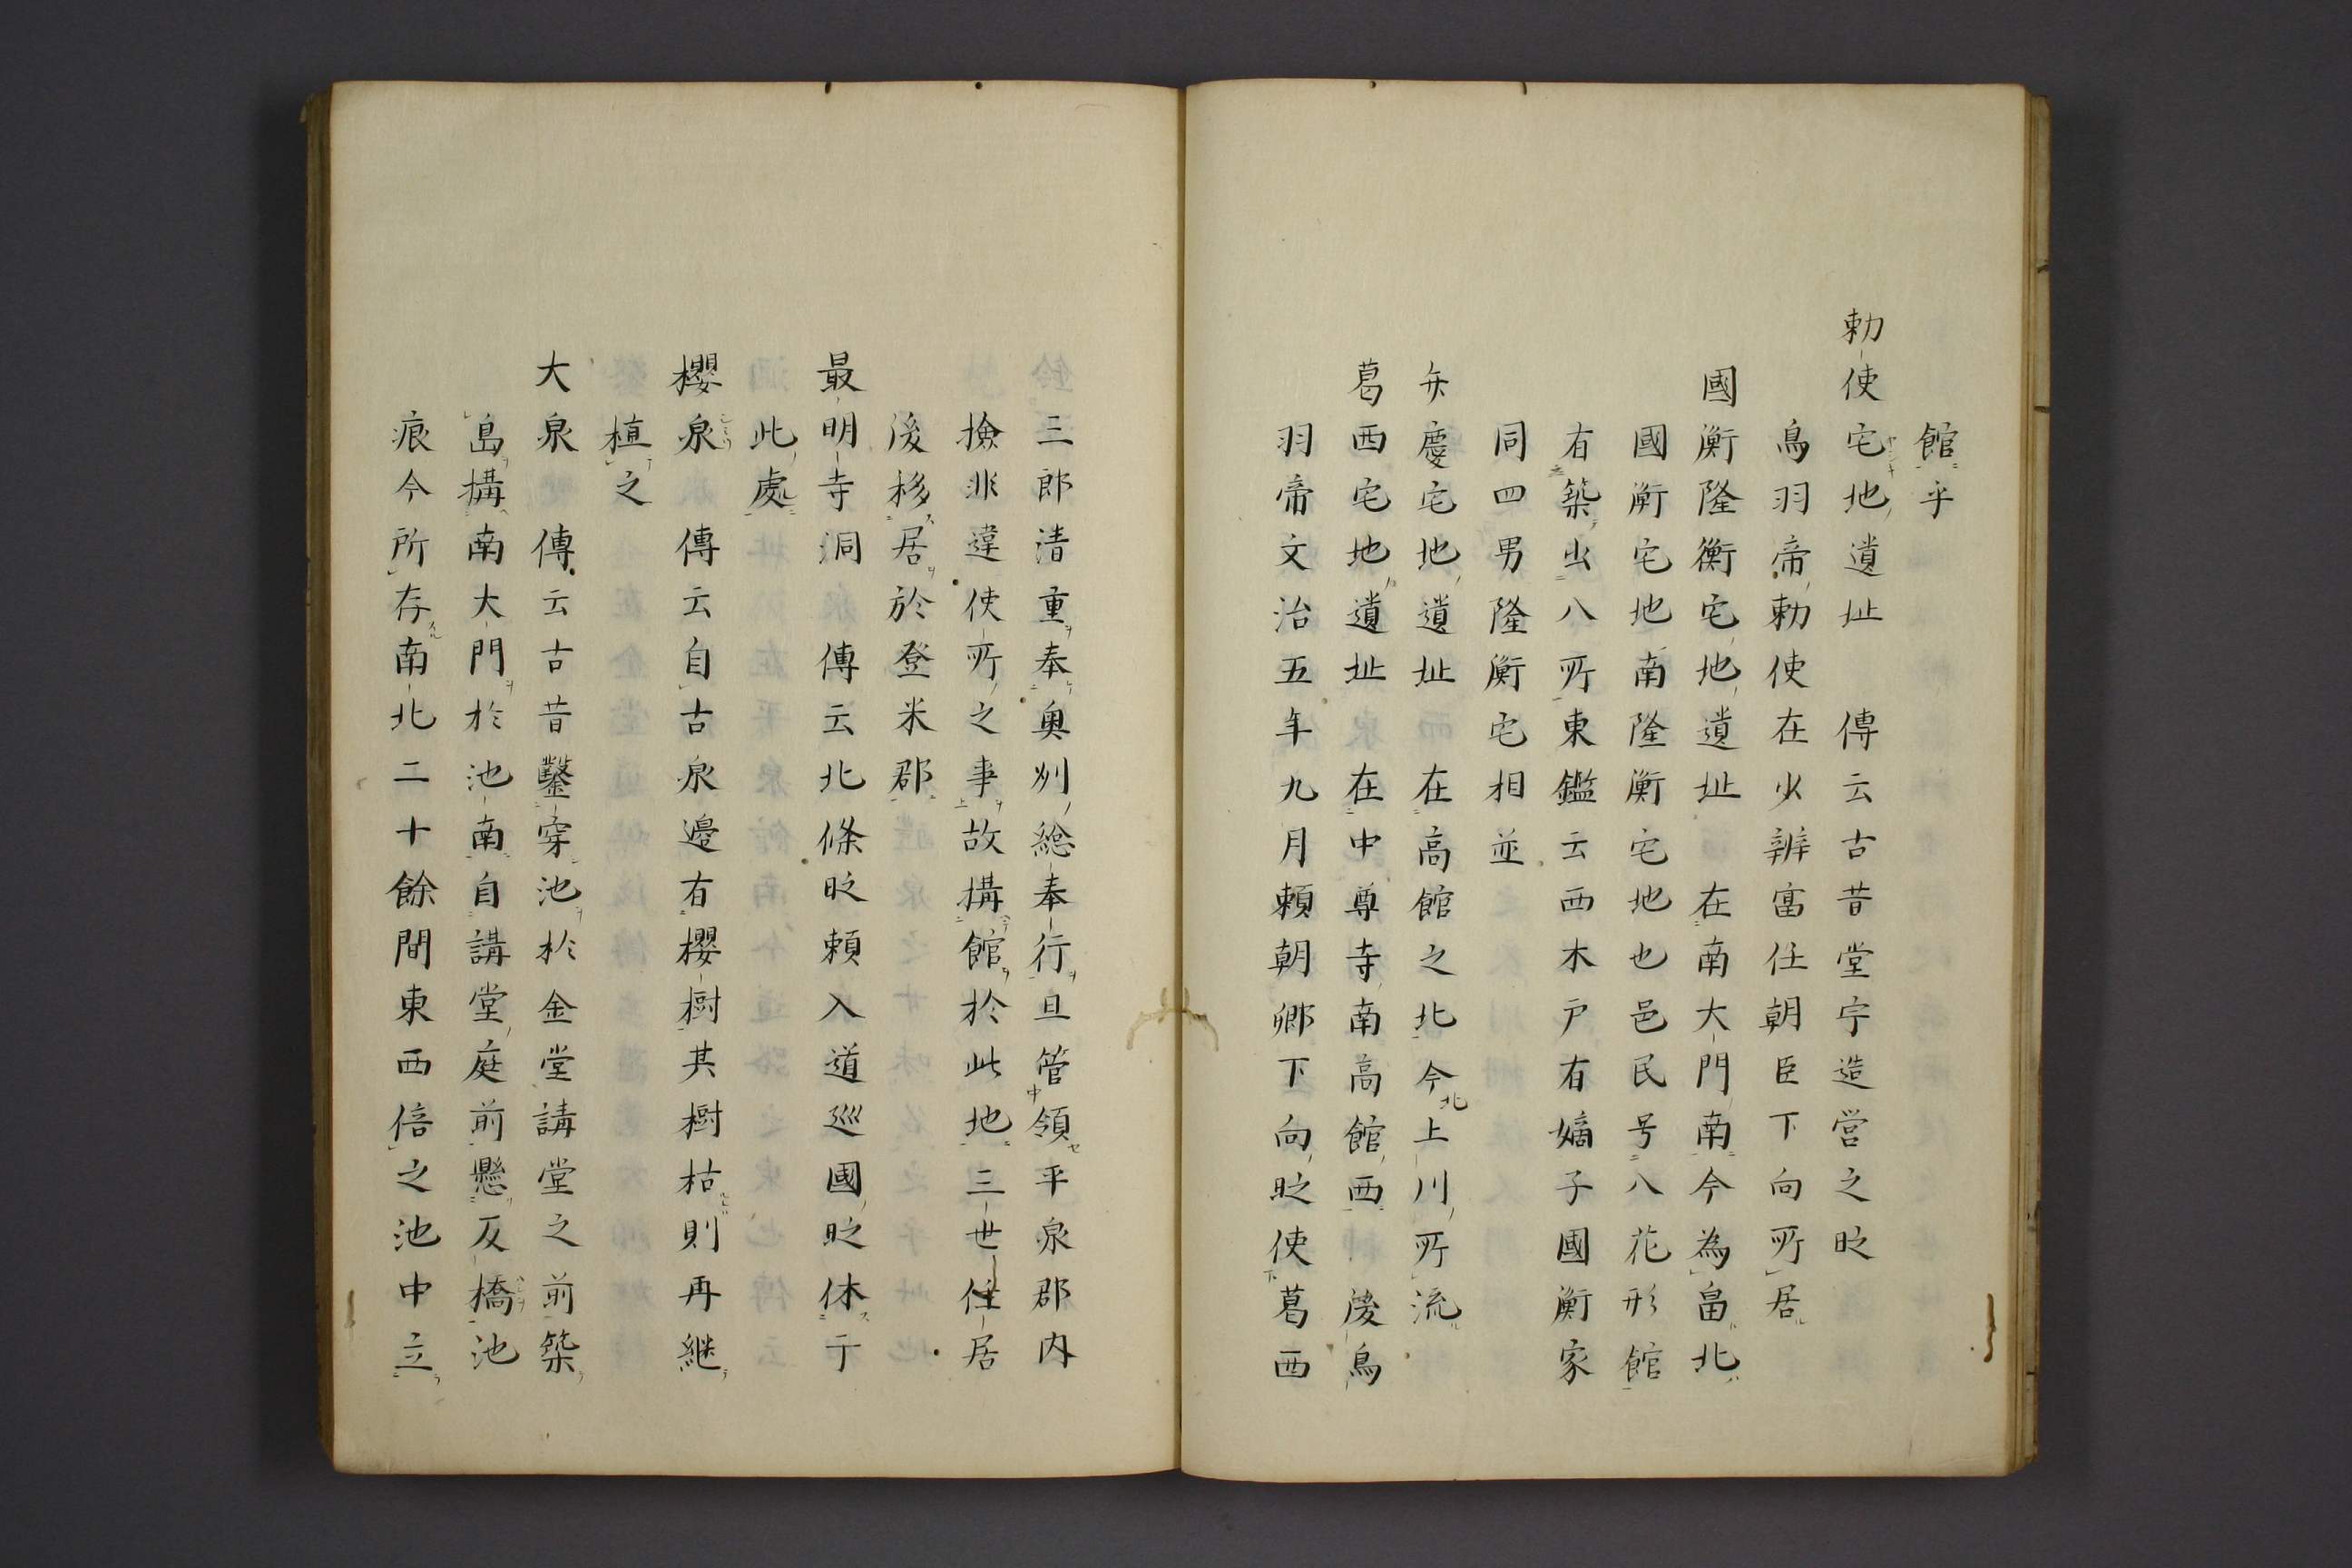 館乎
勅使宅地遺址　傳云古昔堂宇造営之時
鳥羽帝勅使在少辨富任朝臣下向所居
國衡隆衡宅地遺址　在南大門南今為畠北
國衡宅地南隆衡宅地也邑民号八花形館
有築出八所東鑑云西木戸有嫡子國衡家
同四男隆衡宅相並
弁慶宅地遺址　在高館之北今北上川所流
葛西宅地遺址　在中尊寺南高館西　後鳥
羽帝文治五年九月頼朝卿下向時使葛西
三郎清重奉奥州総奉行且管領平泉郡内
撿非違使所之事故構館於此地三世任居
後移居於登米郡
最明寺洞　傳云北條時頼入道巡國時休于
此處
櫻泉　傳云自古泉邉有櫻樹其樹枯則再継
植之
大泉　傳云古昔鑿穿池於金堂講堂之前築
島構南大門於池南自講堂庭前懸反橋池
痕今所存南北二十餘間東西倍之池中立